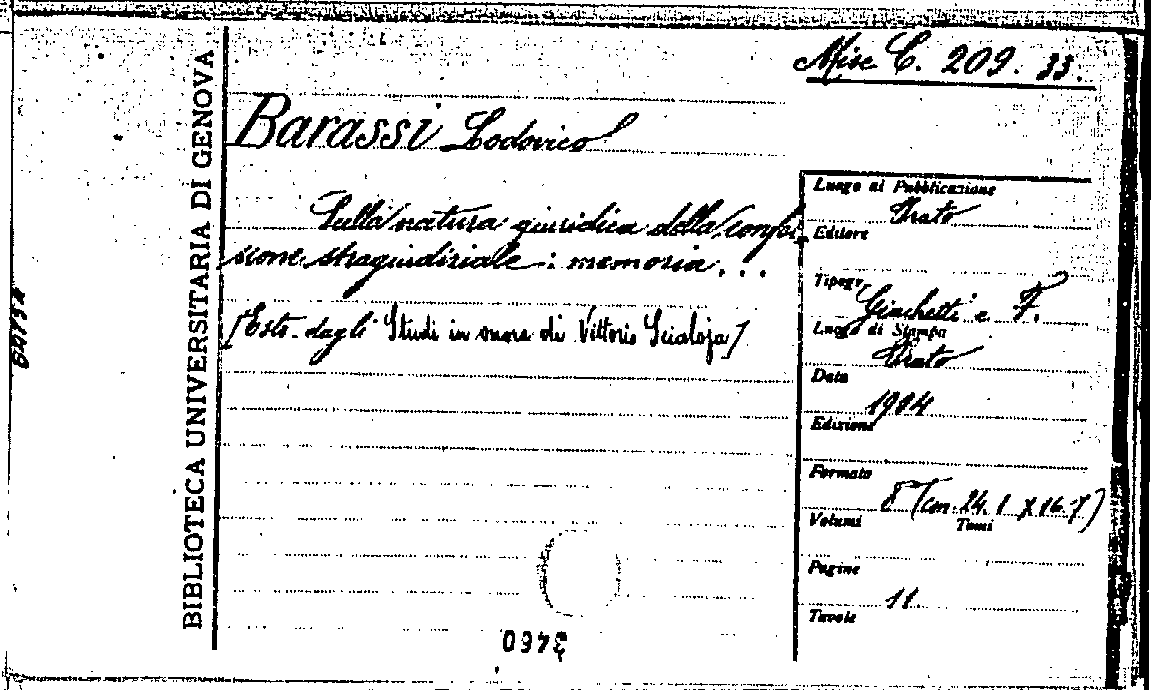 BIBLIOTECA UNIVERSITARIA DI GENOVA
Misc C. 209. 33.
Barassi Lodovico
Sulla natura giuridica della confes-
sione stragiudiziale: memoria...
[Estr. dagli Studi in onore di Vittorio Scialoja]
Luogo di Pubblicazione
Prato
Editore
Tipogr.
Giachetti e F.
Luogo di Stampa
Prato
Data
1904
Edizione
Formato
8° (cm. 24.1 x 16.7)
Volumi Tomi
Pagine
11.
Tavole
3460